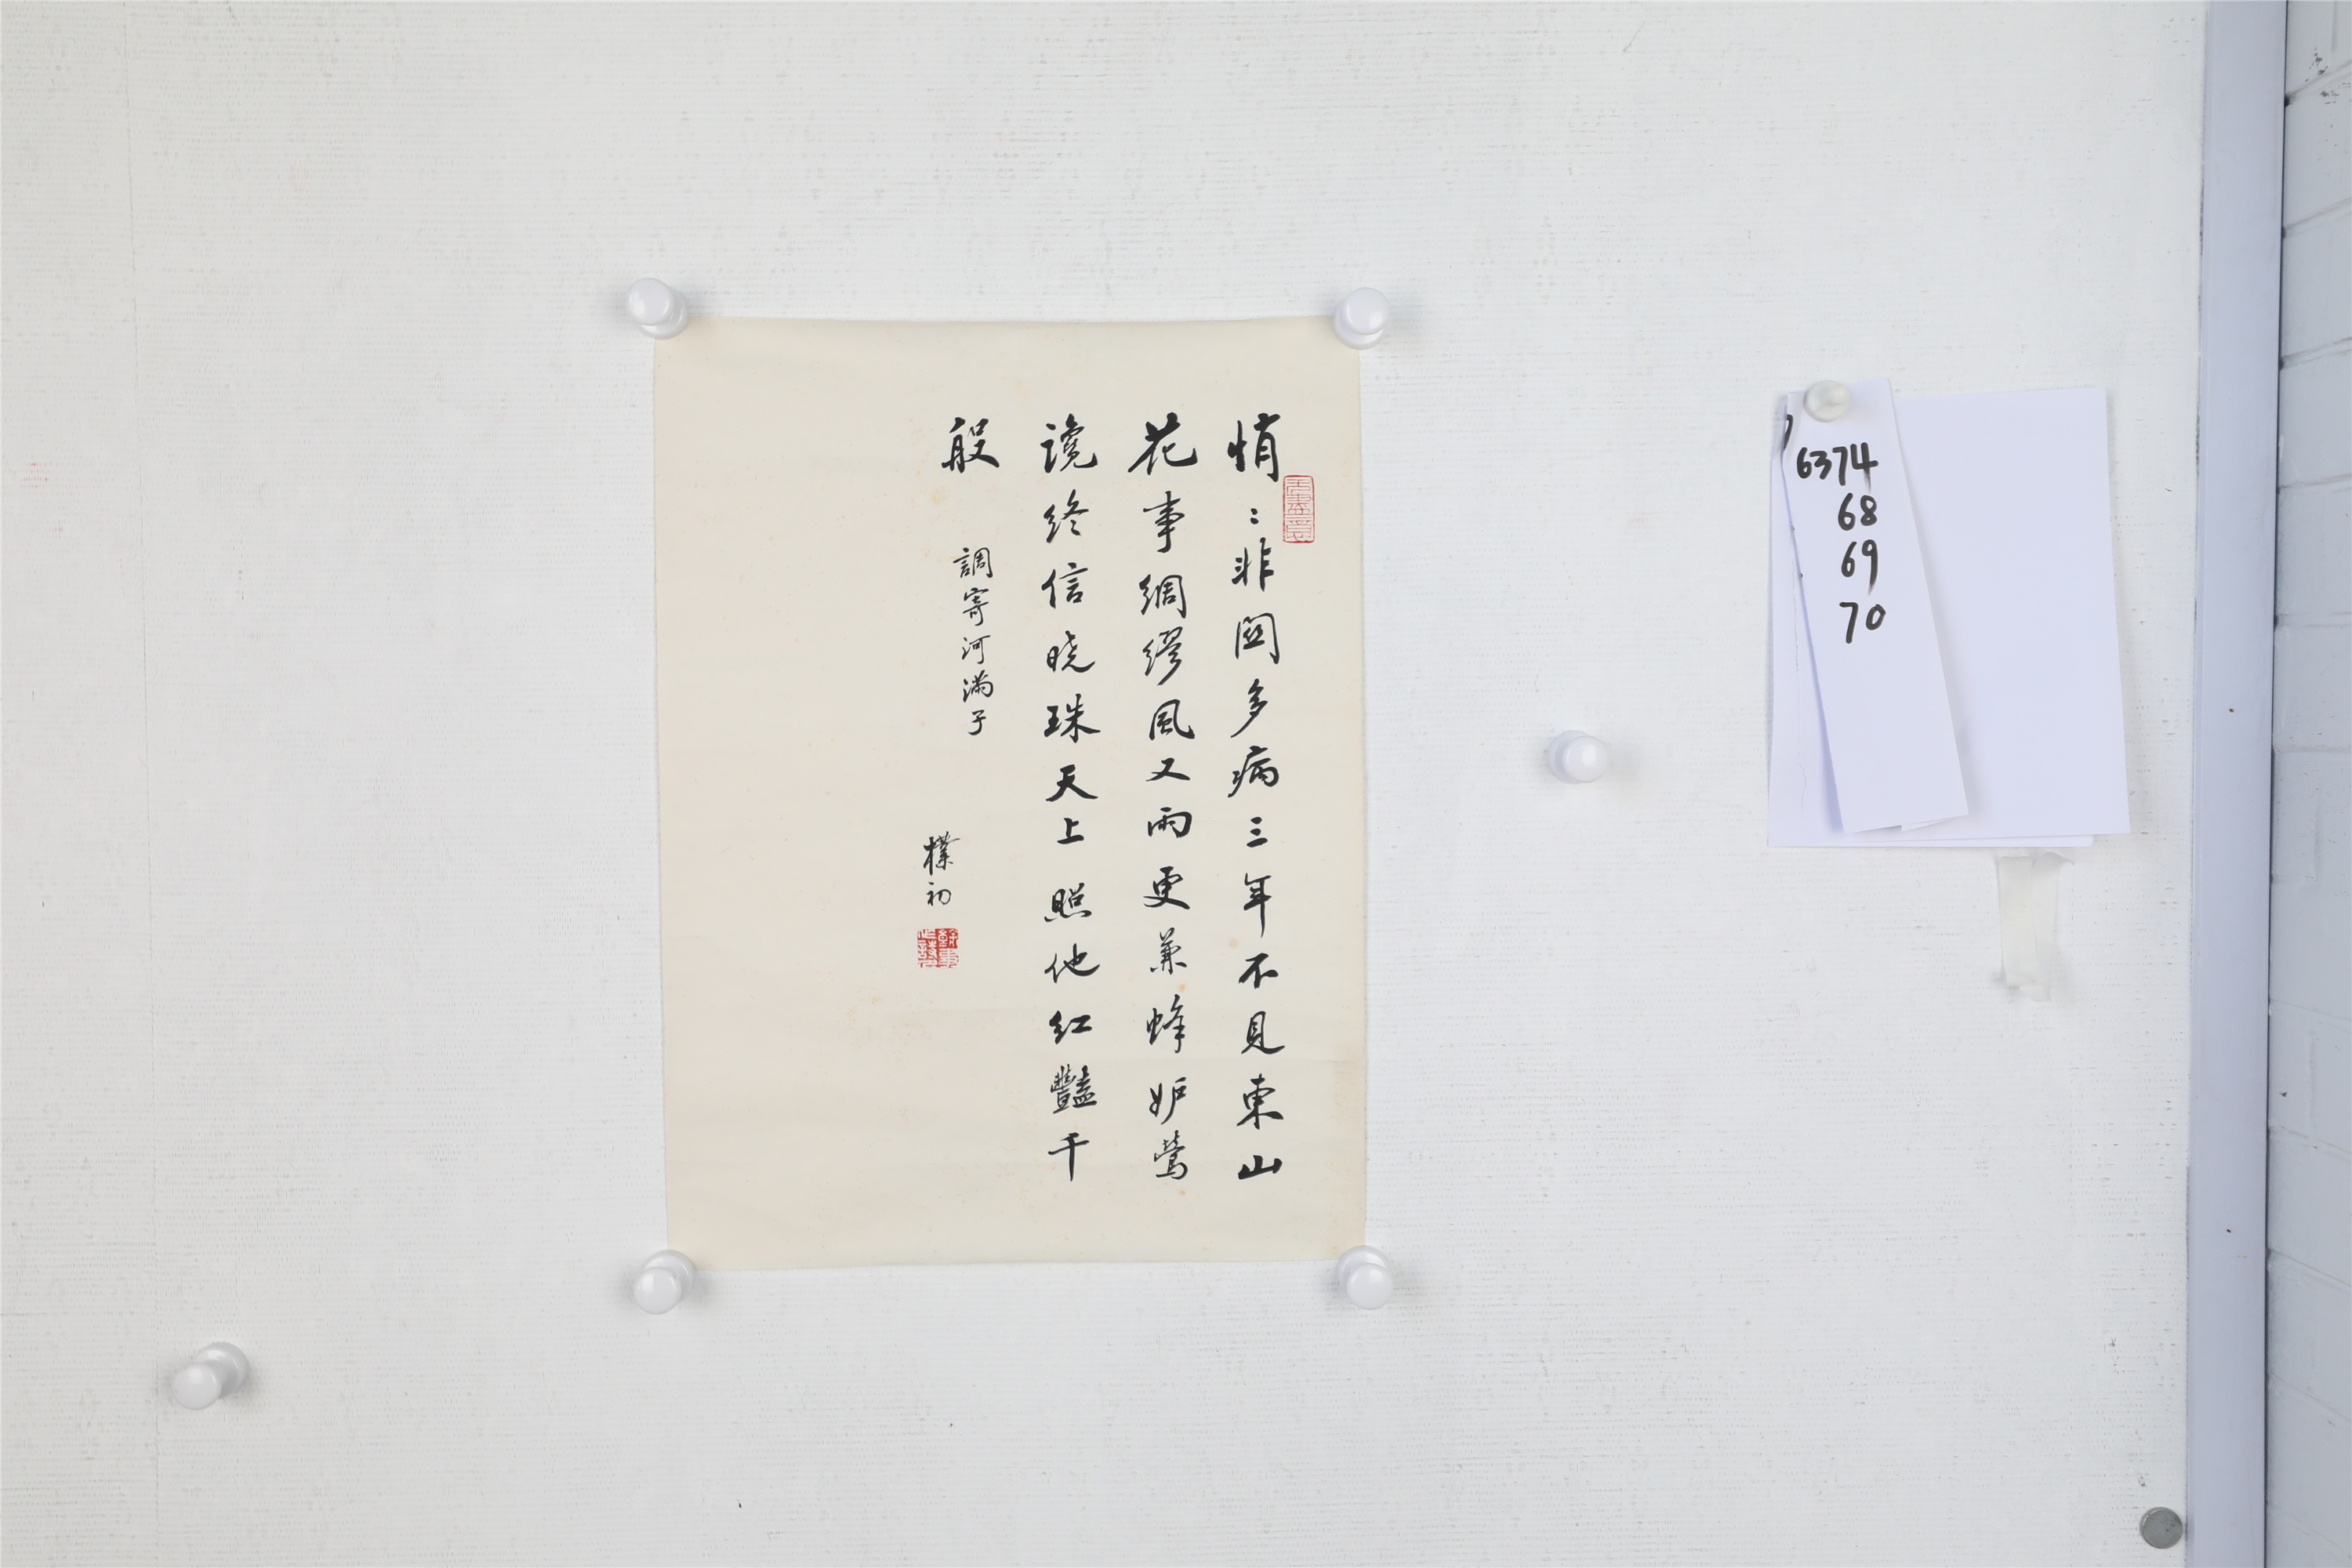 悄〻非関多病三年不見東山
花事綢繆風又雨更兼蜂妒鶯
讒終信晓珠天上照他红豔千
般
調寄河满子
樸初
6374
68
69
70